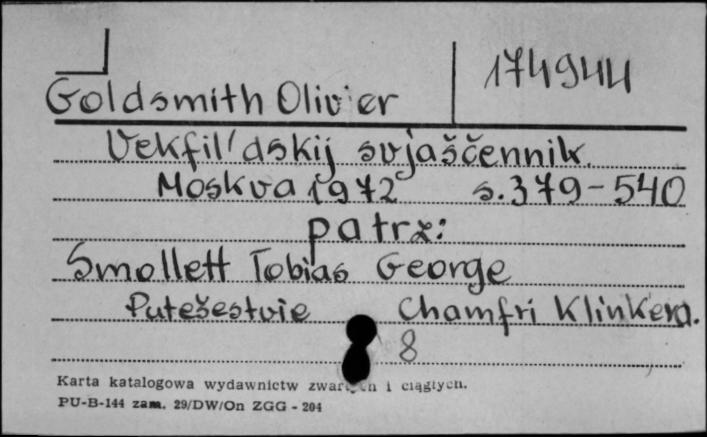 174944
Goldsmith Olivier
Vekfil'dskij svjaščennik.
Moskva 1972 s. 379-540
patrz:
Smollett Tobias George
Putešestvie Chamfri Klinkera.
8
Karta katalogowa wydawnictw zwartych i ciągłych.
PU-B-144 zam. 29/DW/On ZGG - 204